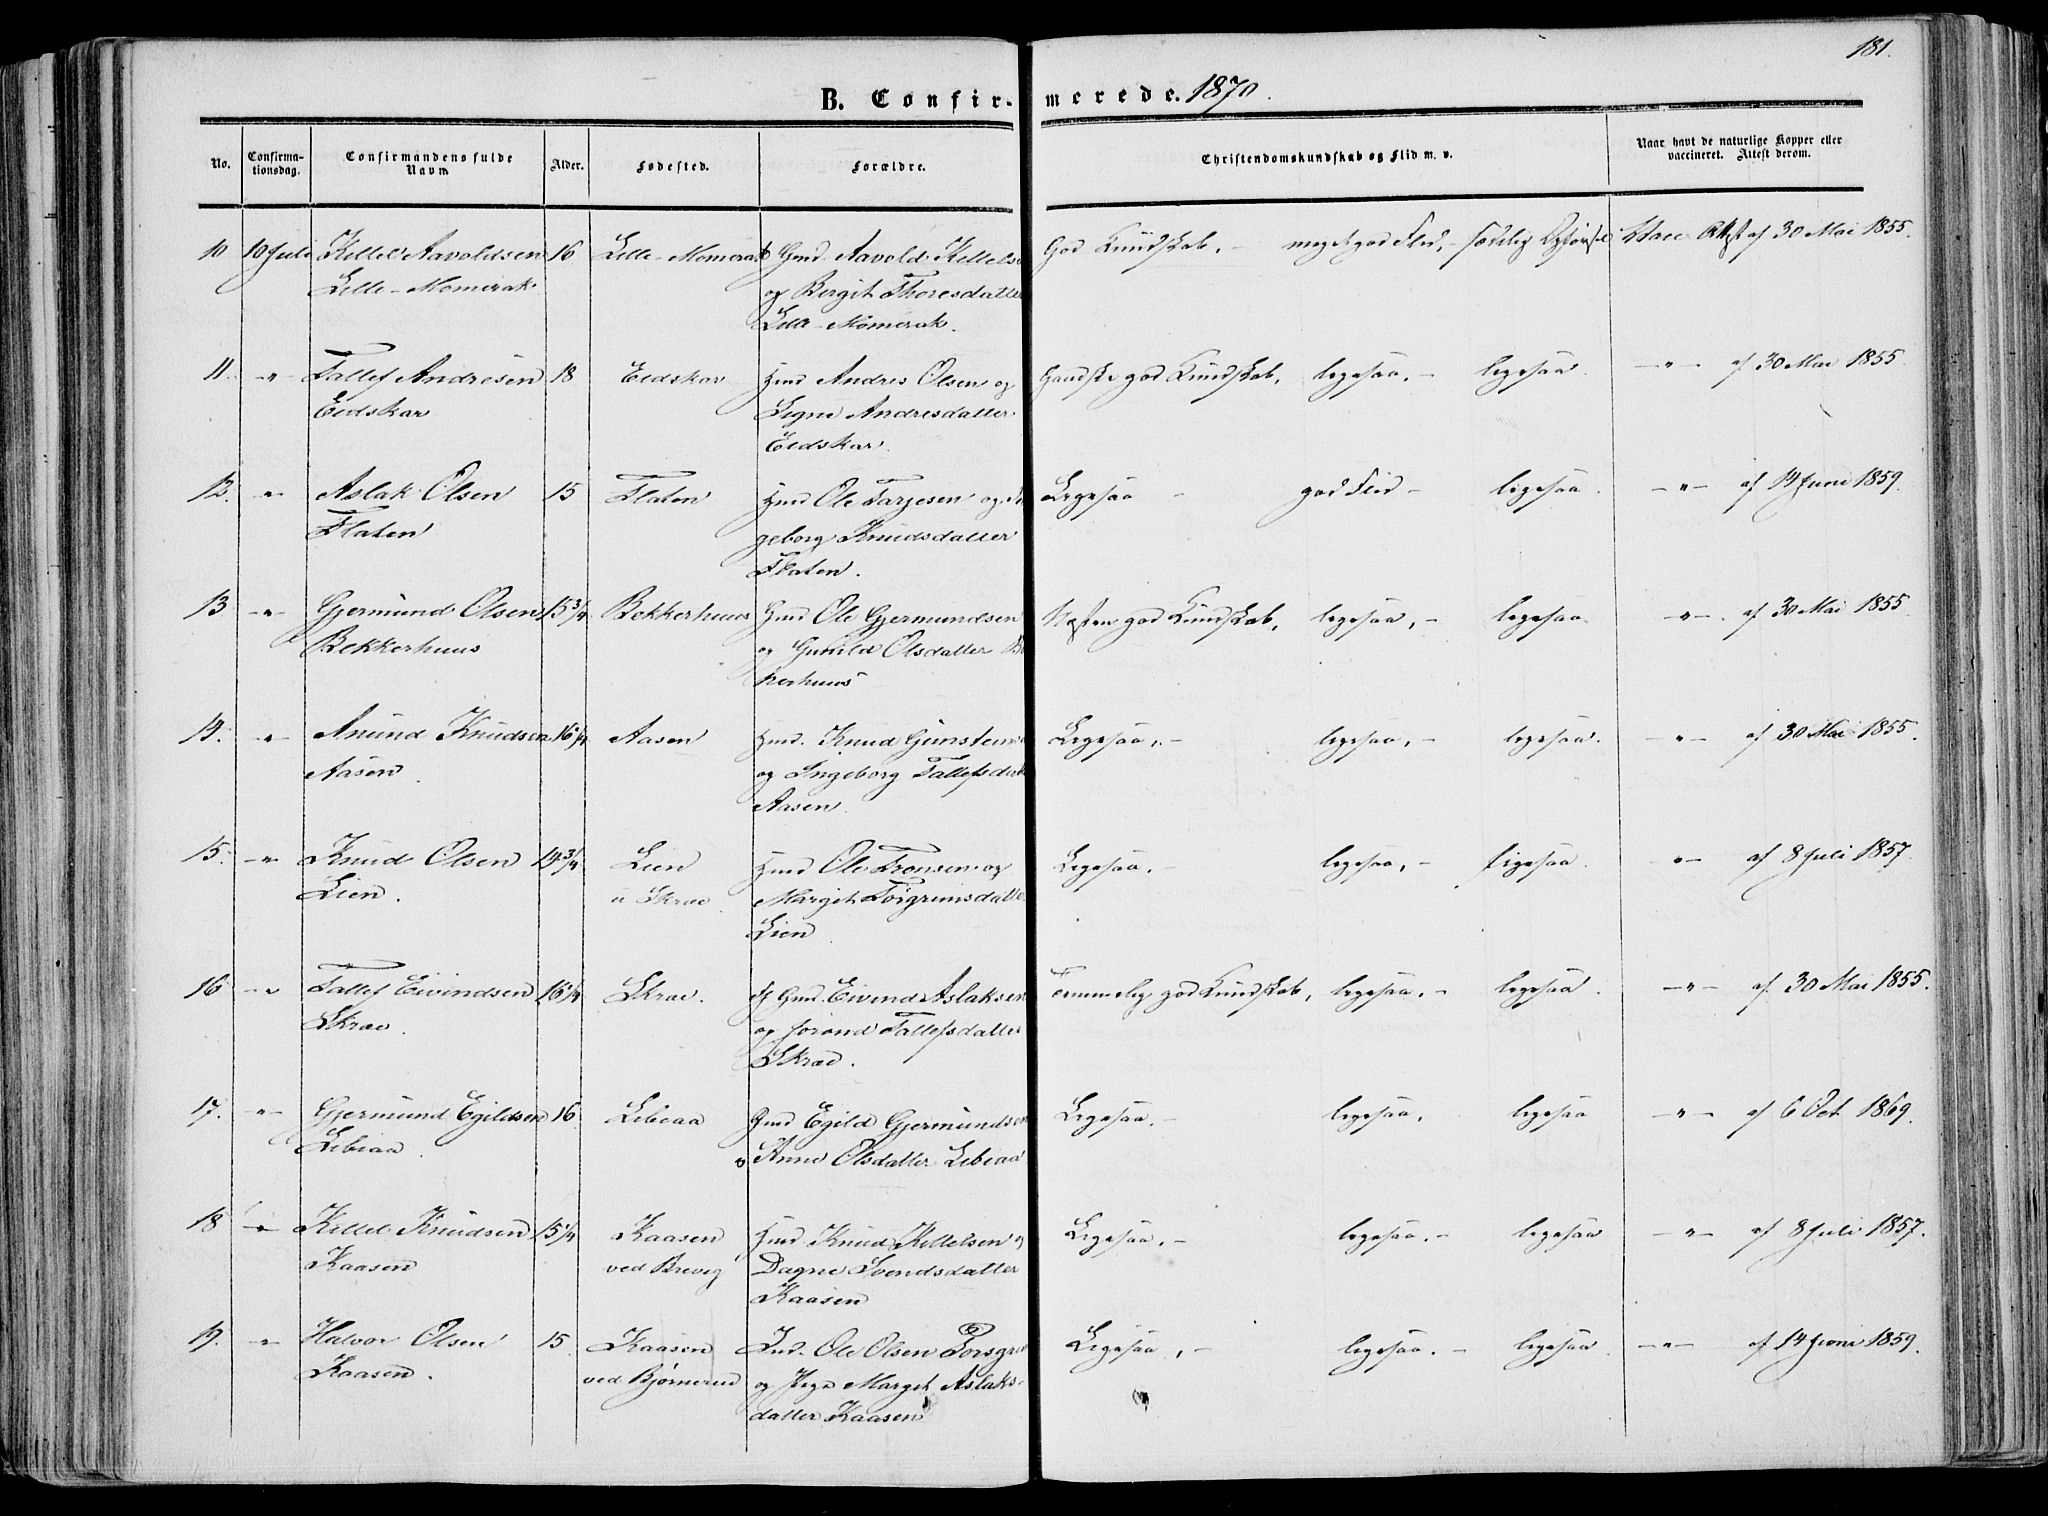 181.
B. Confirmerede. 1870.
No. Confirmationsdag. Confirmandens fulde Navn. Alder. Fødested. Forældre. Christendomskundskab og Flid m. v. Naar havt de naturlige Kopper eller vaccineret. Attest derom.
10 10 Juli Kittel Aavoldsen 16 Lille-Momrak Gmd. Aavold Kittels God Kundskab, - meget god Flid, - sædelig Opførsel Vacc. Attest af 30 Mai 1855.
Lille-Momrak og Bergit Thoresdatter
Lille-Momrak.
11. -"- Tallef Andresen 18 Eidskar Hmd Andres Olsen og Ganske god Kundskab, ligesaa. - ligesaa. -"- af 30 Mai 1855
Eidskar Signe Andresdatter
Eidskar.
12. -"- Aslak Olsen 15 Flaten Hmd Ole Tarjesen og In Ligesaa - god Flid - ligesaa. -"- af 14 Juni 1859.
Flaten geborg Knudsdatter
Flaten.
13 -"- Gjermund Olsen 15 3/4 Bekkerhuus Hmd Ole Gjermundsen Næsten god Kundskab, ligesaa, - ligesaa. -"- af 30 Mai 1855.
Bekkerhuus og Gunild Olsdatter Be
kerhuus
14. -"- Anund Knudsen 16 1/4 Aasen Hmd. Knud Gunstens Ligesaa, - ligesaa, - ligesaa. -"- af 30 Mai 1855.
Aasen og Ingeborg Tallefsdatt
Aasen.
15. -"- Knud Olsen 14 3/4 Lien Hmd Ole Tronsen og Ligesaa. - ligesaa, - ligesaa. "- af 8 Juli 1857.
Lien. u Skrae Margit Torgrimsdatter
Lien
16 -"- Tallef Eivindsen 16 1/4 Skrae. Gmd. Eivind Aslaksen Temmelig god Kundskab, ligesaa. - ligesaa. -"- af 30 Mai 1855.
Skrae. og Jorond Tallefsdatter
Skrae.
17. -"- Gjermund Egildsen 16 Libiaa Gmd Egild Gjermundsen Ligesaa. - ligesaa. ligesaa -"- af 6 Oct. 1869.
Libiaa. o Anne Olsdatter Libiaa
18 -"- Kittel Knudsen 15 1/4 Kaasen Hmd Knud Kittelsen og Ligesaa. - ligesaa. - ligesaa -"- af 8 Juli 1857.
Kaasen ved Brevig Dagne Svendsdatter
Kaasen
19. -"- Halvor Olsen 15. Kaasen Ind. Ole Olsen Porsgr Ligesaa, - ligesaa. - ligesaa. -"- af 14 Juni 1859.
Kaasen. ved Bjørnerud og Pige Margit Aslaks-
datter Kaasen